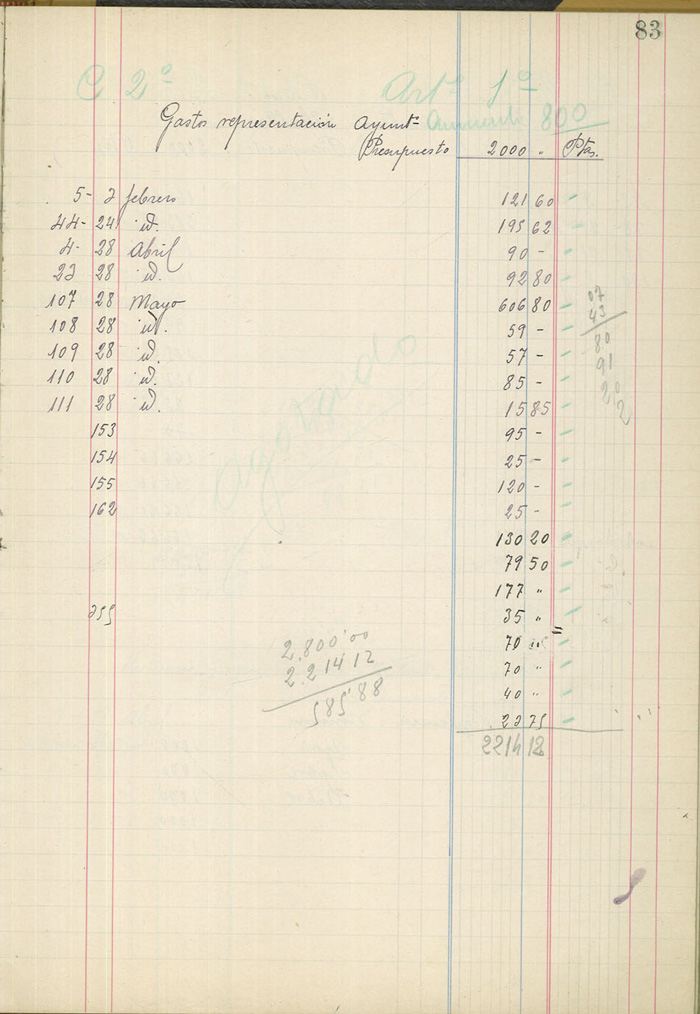 83
C 2º Artº 1º
Gastos representación Ayuntº Aumento 800
Presupuesto 2000 . Ptas.
5- 2 febrero 121 60
44- 24 id. 195 62
4- 28 Abril 90 -
23 28 id. 92 80
107 28 Mayo 606 80
108 28 id. 59 -
109 28 id. 57 -
110 28 id. 85 -
111 28 id. 15 85
153 95 -
154 25 -
155 120 -
162 25 -
130 20
79 50
177 "
255 35 "
70 "
70 "
40 "
23 75
2214 12
07
43
80
91
20
2
Agotado
2.800'00
2.214 12
585'88